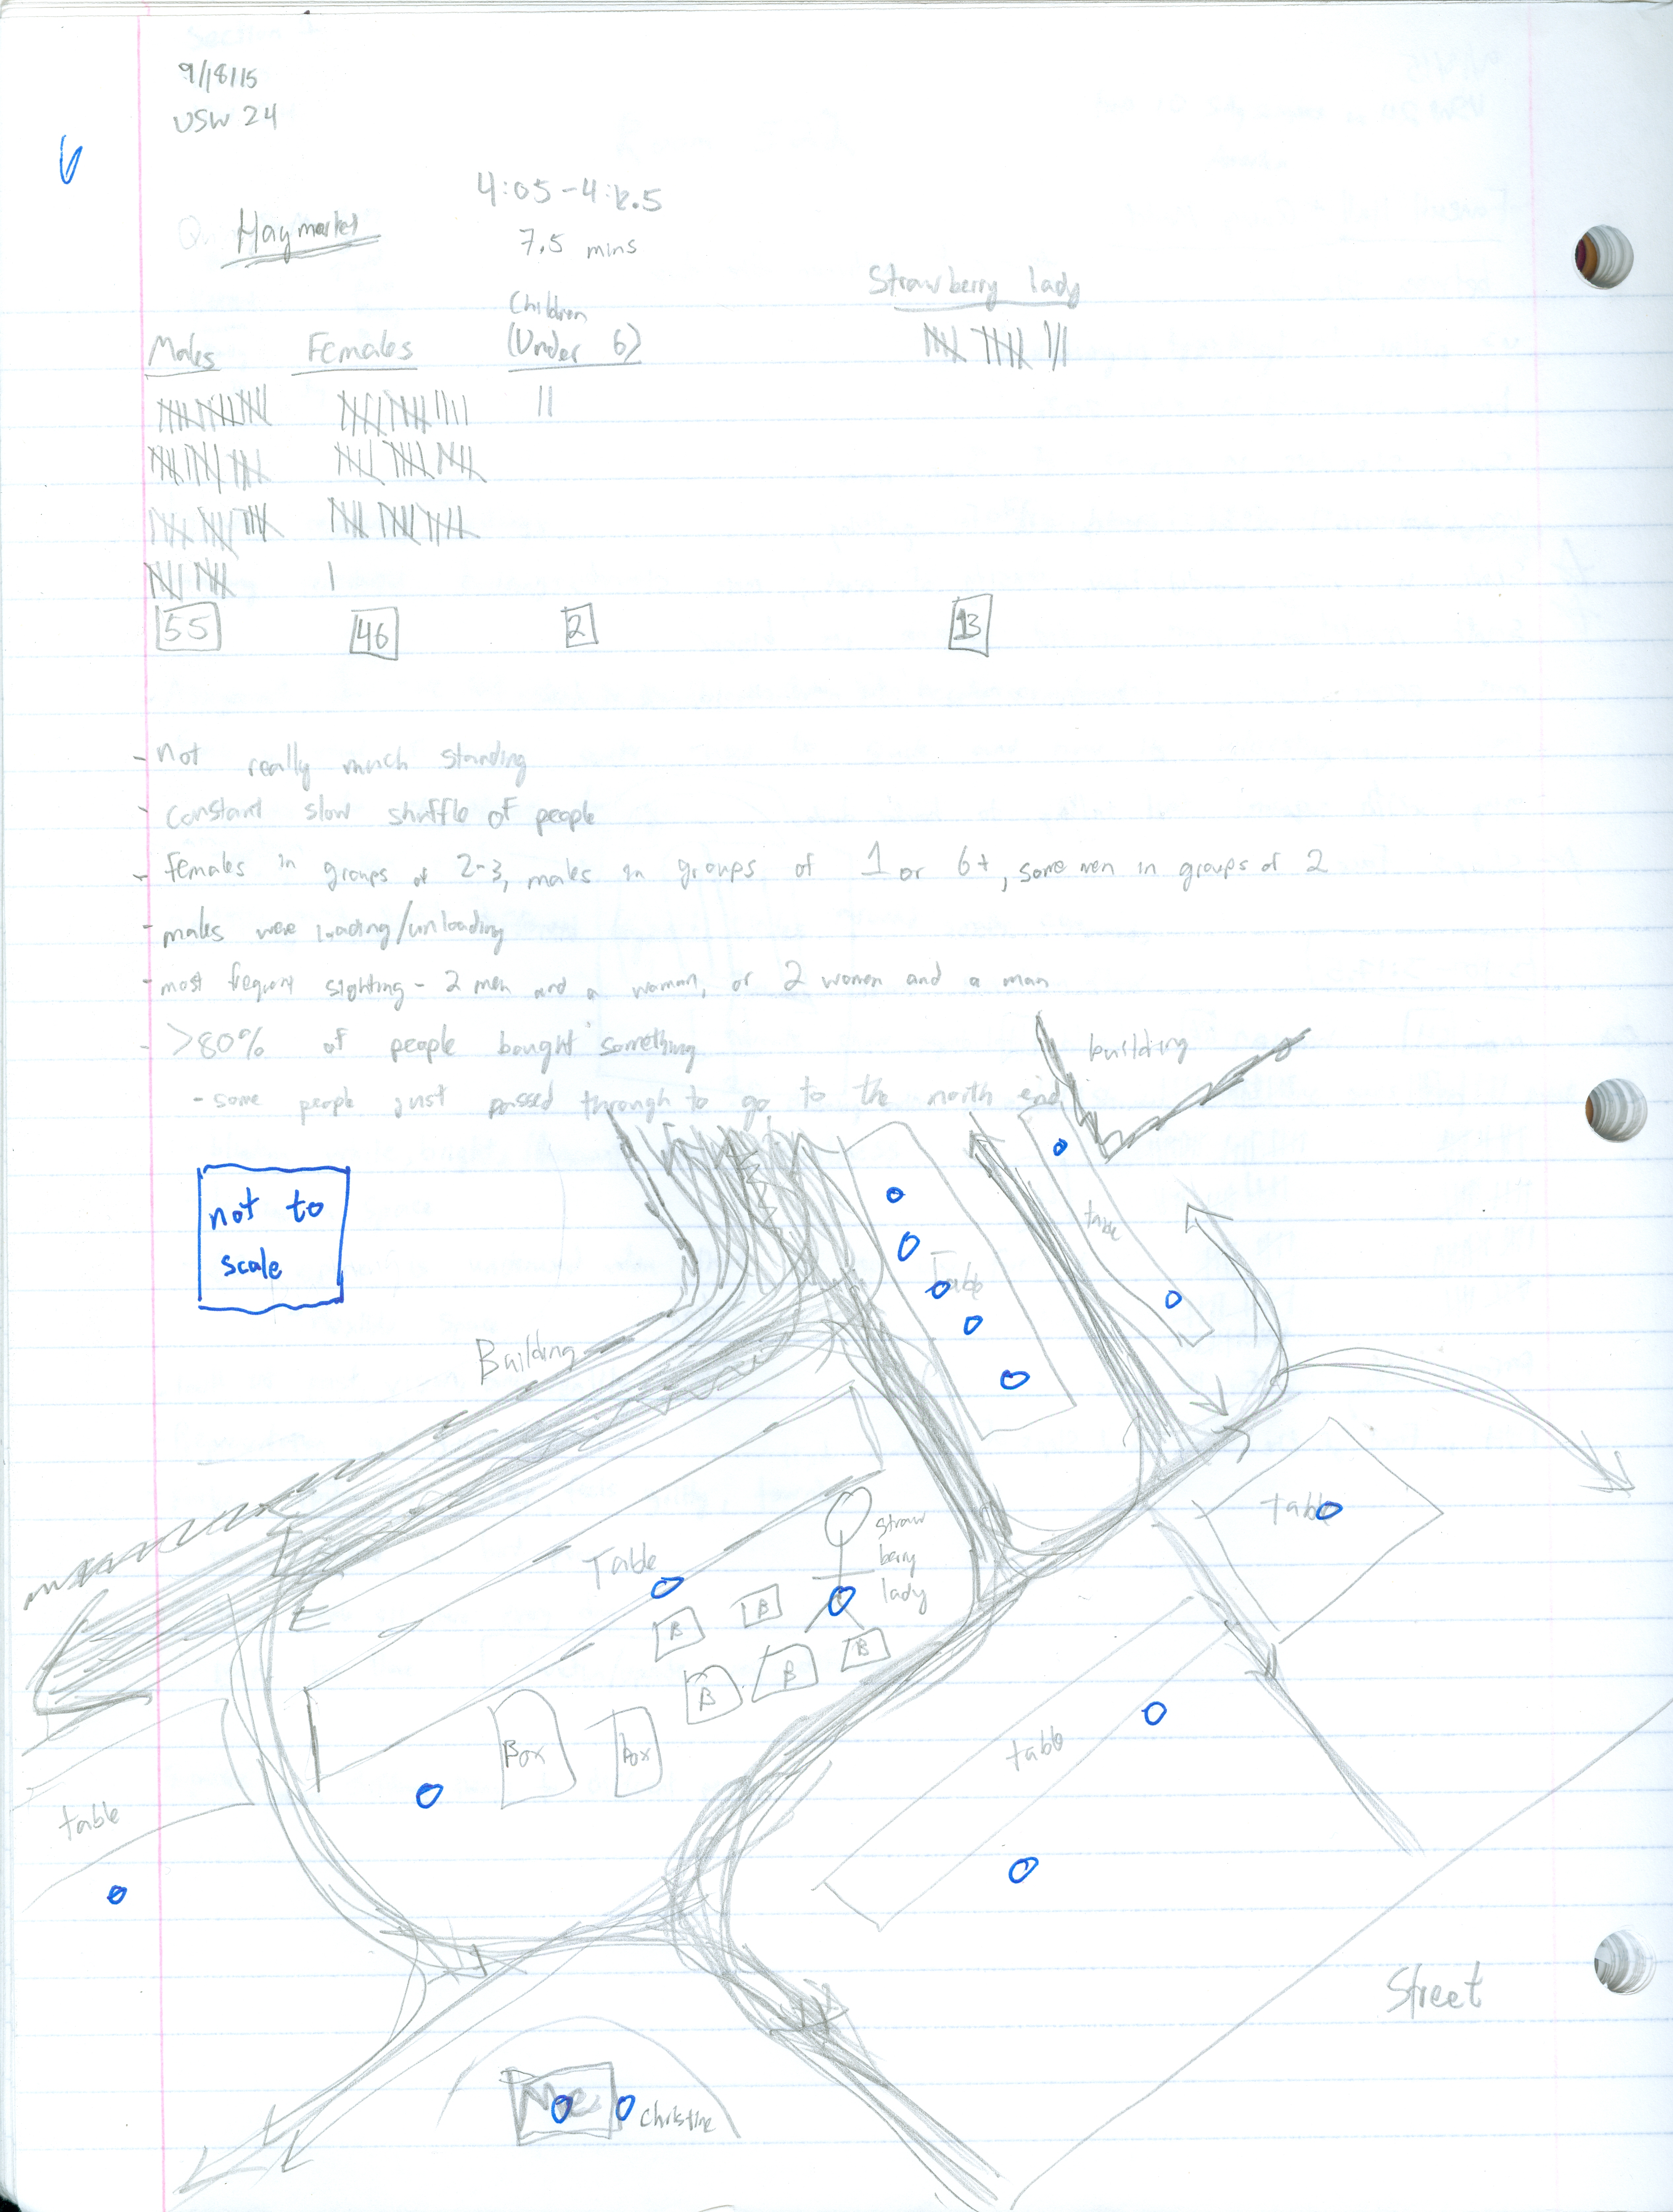 9/18/15
USW 24
4:05-4:12.5
Haymarket
7.5 mins
Strawberry lady
Children
Males Females (Under 6)
55 46 2 13
- not really much standing
- constant slow shuffle of people
- females in groups of 2-3, males in groups of 1 or 6+, some men in groups of 2
- males were loading/unloading
- most frequent sighting - 2 men and a woman, or 2 women and a man
- >80% of people bought something
- some people just passed through to go to the north end
building
not to
scale
table
Table
Building
table
straw
berry
lady
Table
B
B
B
B
B
Box
box
table
table
Street
Me
Christine